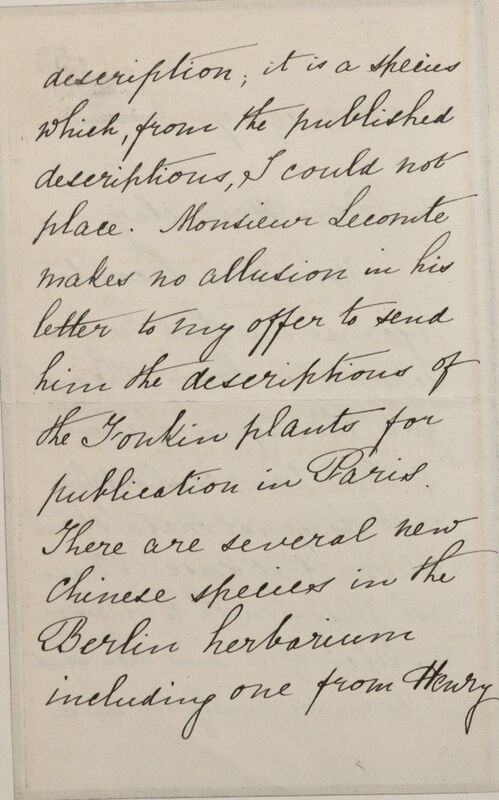 description; it is a species
which, from the published
descriptions, I could not
place. Monsieur Lecomte
makes no allusion in his
letter to my offer to send
him the descriptions of
the Tonkin plants for
publication in Paris.
There are several new
Chinese species in the
Berlin herbarium
including one from Henry